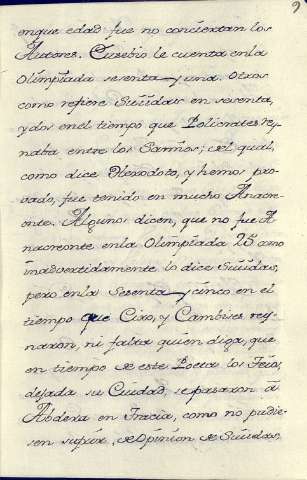 9
enque edad fue no conciertan los
Autores. Eusebio le cuenta enla
Olimpiada sesenta y una. Otros
como refiere Suidas en sesenta,
y dos en el tiempo que Policrates rey
naba entre los Samios; del qual,
como dice Herodoto, y hemos pro
vado, fue tenido en mucho Anacre
onte. Algunos dicen, que no fue A
nacreonte enla Olimpiada 25 como
inadvertidamente lo dice Suidas,
pero enla Sesenta y cinco en el
tiempo que Ciro, y Cambises rey
naron, ni falta quien diga, que
en tiempo de este Poeta los Teios
dejada su Ciudad, se pasaron à
Abdera en Tracia, como no pudie
sen sufrir, de Opinion de Suidas,